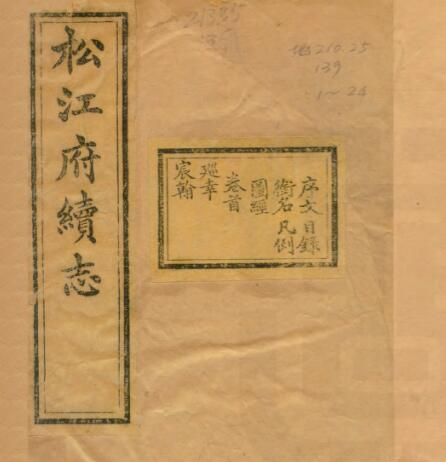 松江府續志
序文 目錄
銜名 凡例
圖經
卷首
廵幸
宸翰
地210.25
139
1~24